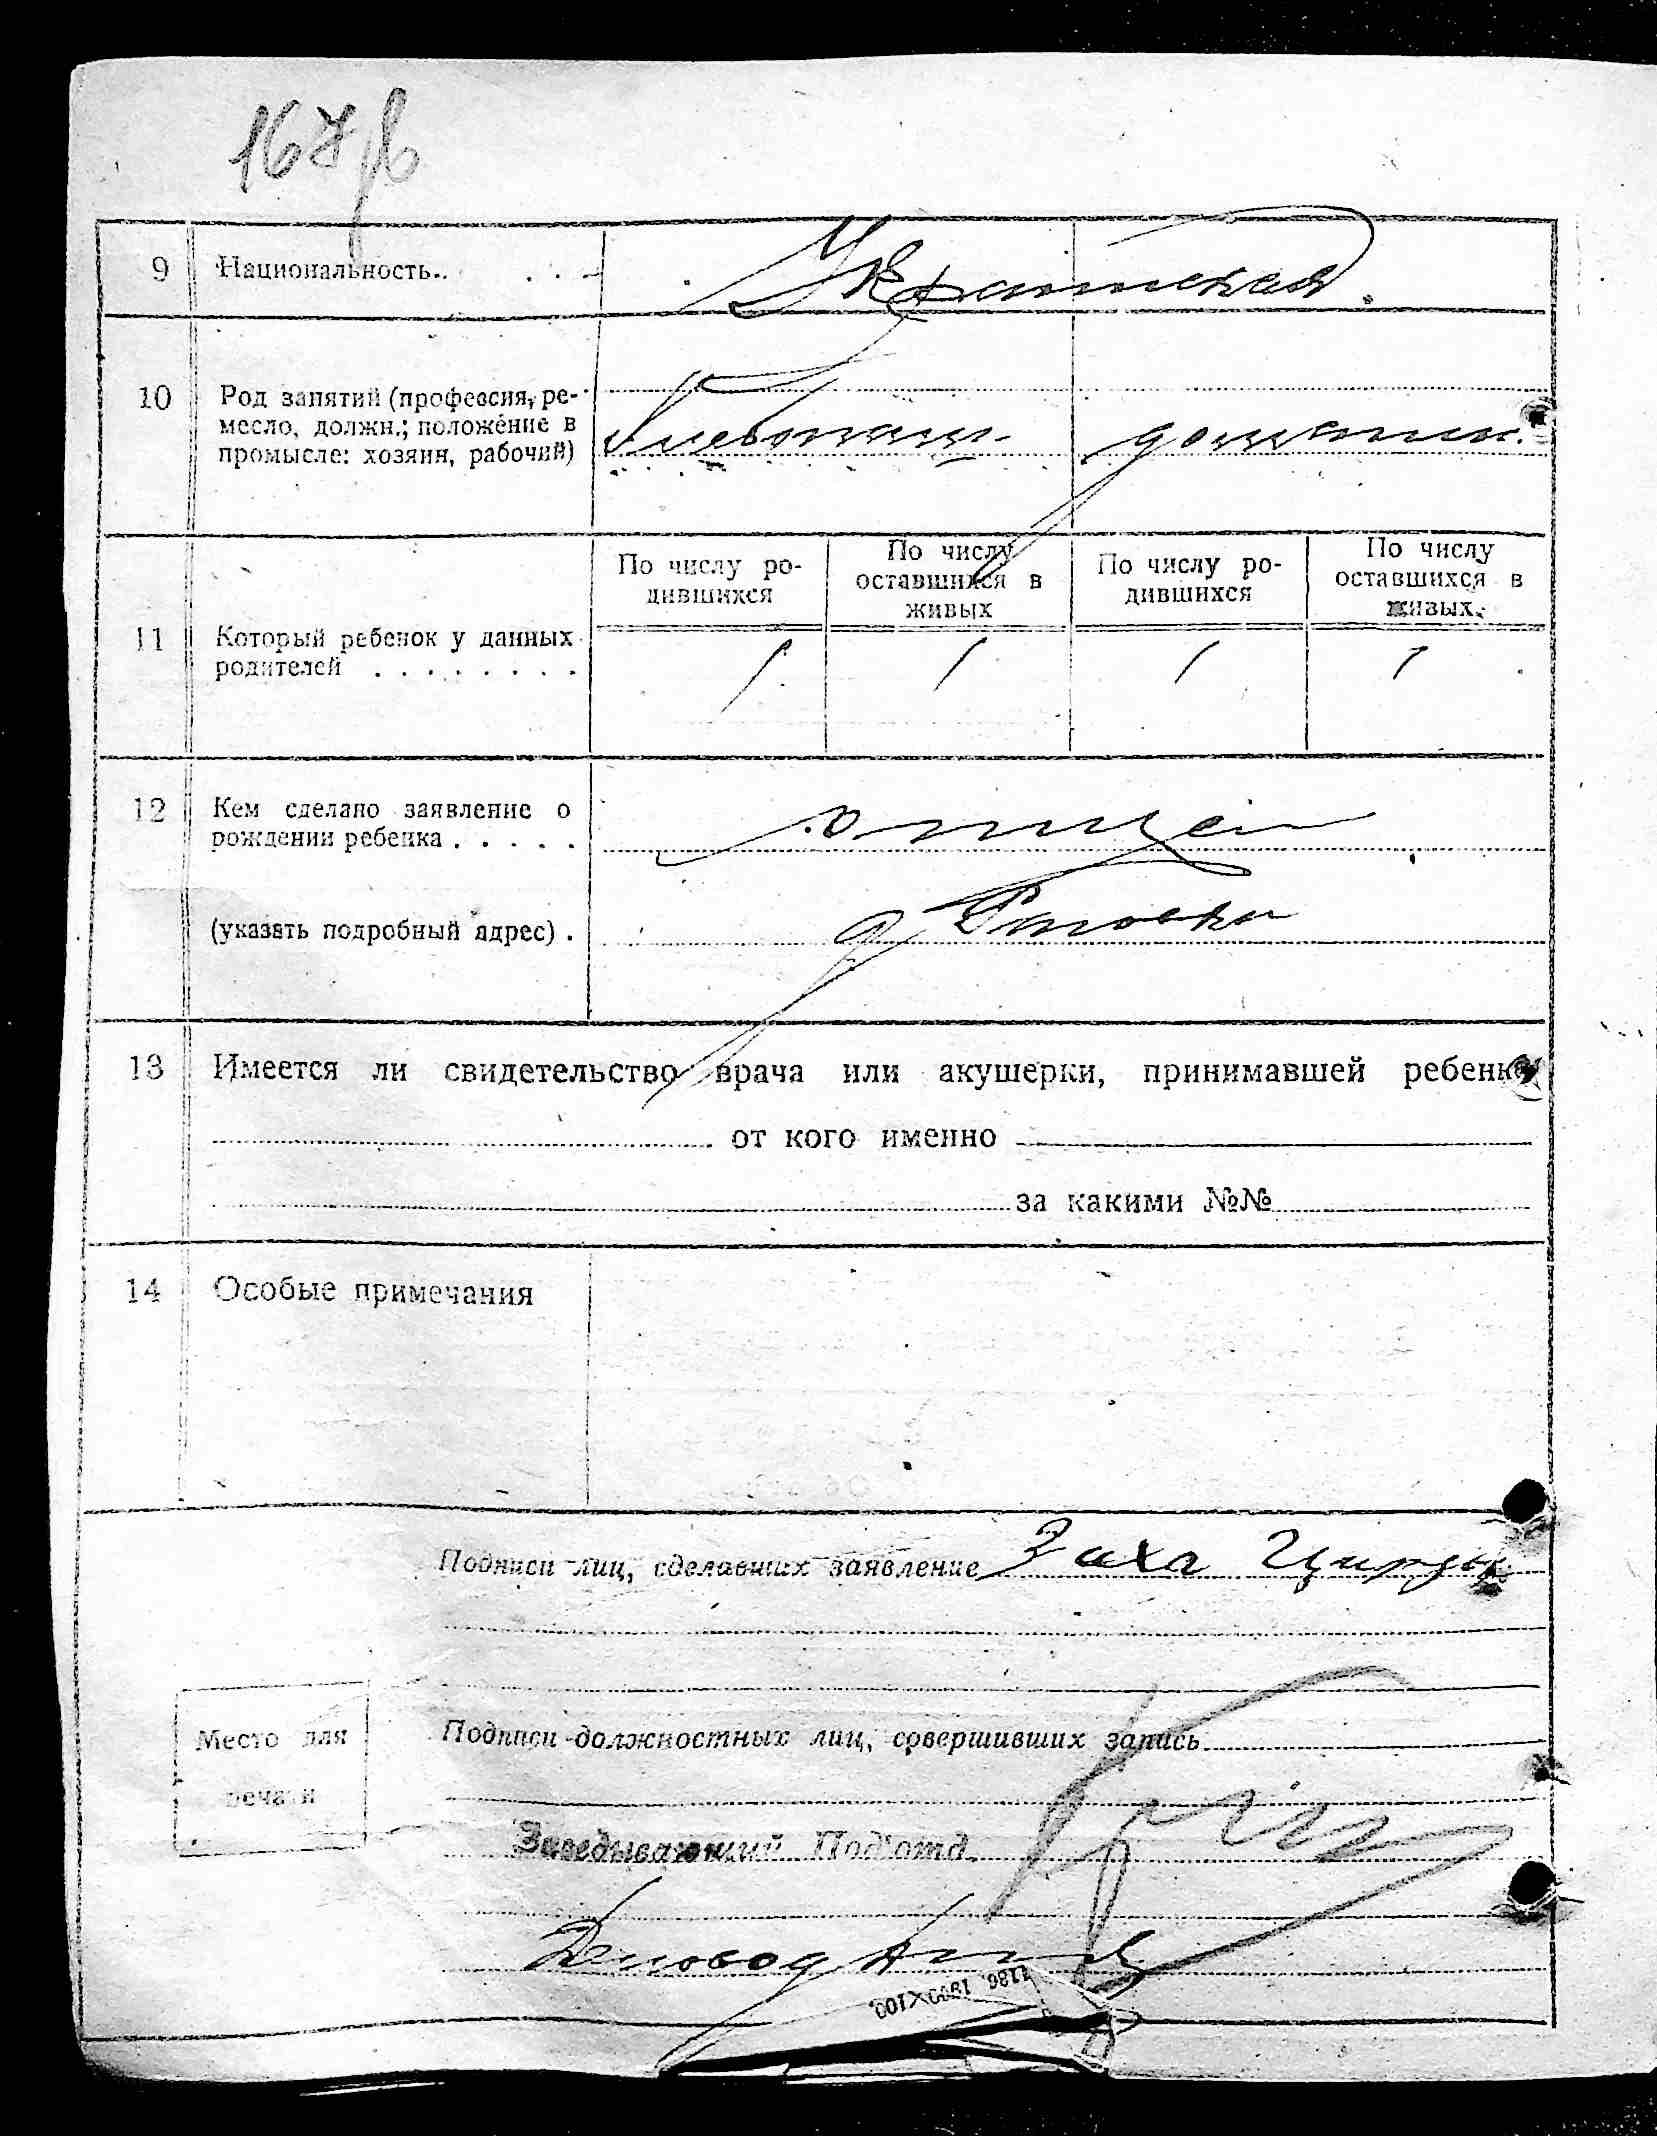 9 Национальность.. Украинская.
10 Род занятий (профессия, ре-
месло, должн.; положение в
промысле: хозяин, рабочий)
Хлебопаш- домашн.
По числу ро-
дившихся
По числу
оставшихся в
живых
По числу ро-
дившихся
По числу
оставшихся в
живых
11 Который ребенок у данных
родителей . . . . . . . .
1 1 1 1
12 Кем сделано заявление о
рождении ребенка . . . . . отцем
(указать подробный адрес) .
13 Имеется ли свидетельство врача или акушерки, принимавшей ребенка
от кого именно
за какими №№
14 Особые примечания
Подписи лиц, сделавших заявление
Место для
печати
Подписи должностных лиц, совершивших запись
Заведывающий Под'отд.
Деловод